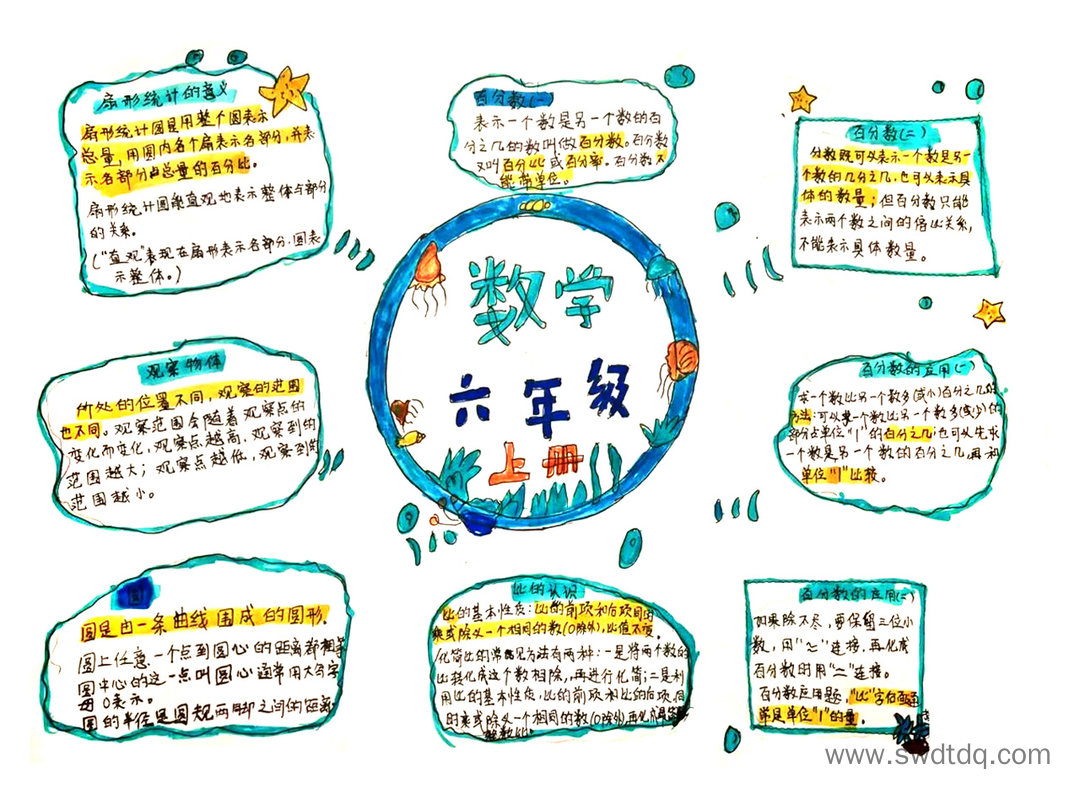 扇形统计的意义
扇形统计图是用整个圆表示
总量,用圆内各个扇表示各部分,并表
示各部分占总量的百分比。
扇形统计图能直观地表示整体占部分
的关系。
(“直观”表现在扇形表示各部分.圆表
示整体。)
百分数(一)
表示一个数是另一个数的百
分之几的数叫做百分数。百分数
又叫百分比或百分率。百分数不
能带单位。
百分数(二)
分数既可以表示一个数是另一
个数的几分之几,也可以表示具
体的数量;但百分数只能
表示两个数之间的倍比关系,
不能表示具体数量。
数学
六年级
上册
观察物体
所处的位置不同,观察的范围
也不同。观察范围会随着观察点的
变化而变化,观察点越高,观察到的
范围越大;观察点越低,观察到的
范围越小。
百分数的应用(一)
求一个数比另一个数多(或少)百分之几的
方法:可以求一个数比另一个数多(或少)的
部分占单位“1”的百分之几;也可以先求
一个数是另一个数的百分之几,再和
单位“1”比较。
圆
圆是由一条曲线围成的图形.
圆上任意一个点到圆心的距离都相等
圆中心的这一点叫圆心通常用大写字
母O表示。
圆的半径是圆规两脚之间的距离
比的认识
比的基本性质:比的前项和后项同时
乘或除以一个相同的数(0除外),比值不变。
化简比的常见方法有两种:一是将两个数的
比转化成这个数相除,再进行化简;二是利
用比的基本性质,比的前项和比的后项同
时乘或除以一个相同的数(0除外),再化成最简
整数比。
百分数的应用(二)
如果除不尽,要保留三位小
数,用“≈”连接.再化成
百分数的用“=”连接。
百分数应用题,“比”字后面通
常是单位“1”的量.
www.swdtdq.com